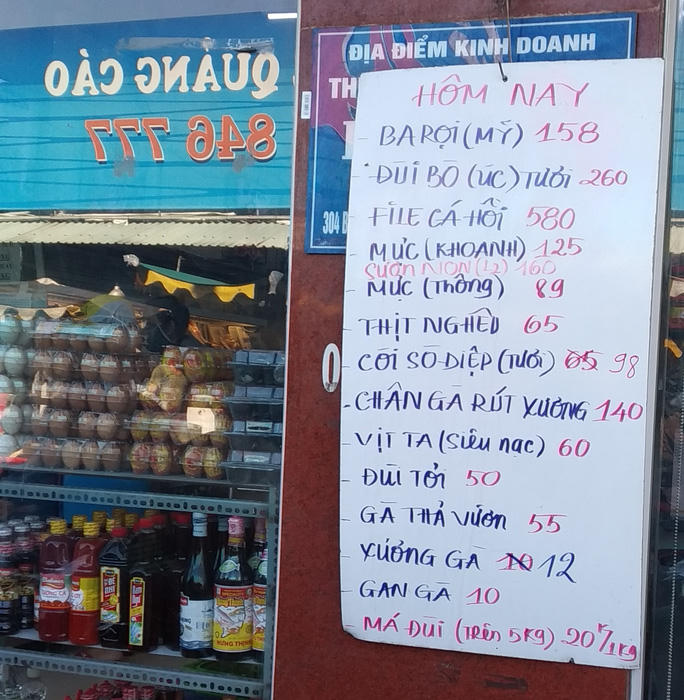 QUẢNG CÁO
846 777
ĐỊA ĐIỂM KINH DOANH
TH
304
HÔM NAY
- BA RỌI (MỸ) 158
- ĐÙI BÒ (ÚC) TƯƠI 260
- FILE CÁ HỒI 580
- MỰC (KHOANH) 125
SƯỜN NON (L2) 160
- MỰC (Thông) 89
- THỊT NGHÊU 65
- CỒI SÒ ĐIỆP (TƯƠI) 98
- CHÂN GÀ RÚT XƯƠNG 140
- VỊT TA (Siêu nạc) 60
- ĐÙI TỎI 50
- GÀ THẢ VƯỜN 55
- XƯƠNG GÀ 10 12
- GAN GÀ 10
- MÁ ĐÙI (TRÊN 5Kg) 20K/1Kg
HƯNG THỊNH